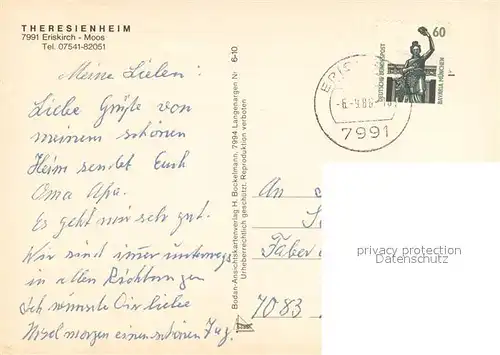 THERESIENHEIM
7991 Eriskirch - Moos
Tel. 07541-82051
Meine Lieben!
Liebe Grüße von
meinem schönen
Heim sendet Euch
Oma
Es geht mir sehr gut.
Wir sind immer unterwegs
in allen Richtungen
Ich wünsche Dir liebe
morgen einen schönen Tag.
Bodan-Ansichtskartenverlag H. Bockelmann, 7994 Langenargen Nr. 6-10
Urheberrechtlich geschützt. Reproduktion verboten
60
DEUTSCHE BUNDESPOST
BAVARIA MÜNCHEN
ERIS
7991
An
Faber
7083
privacy protection
Datenschutz